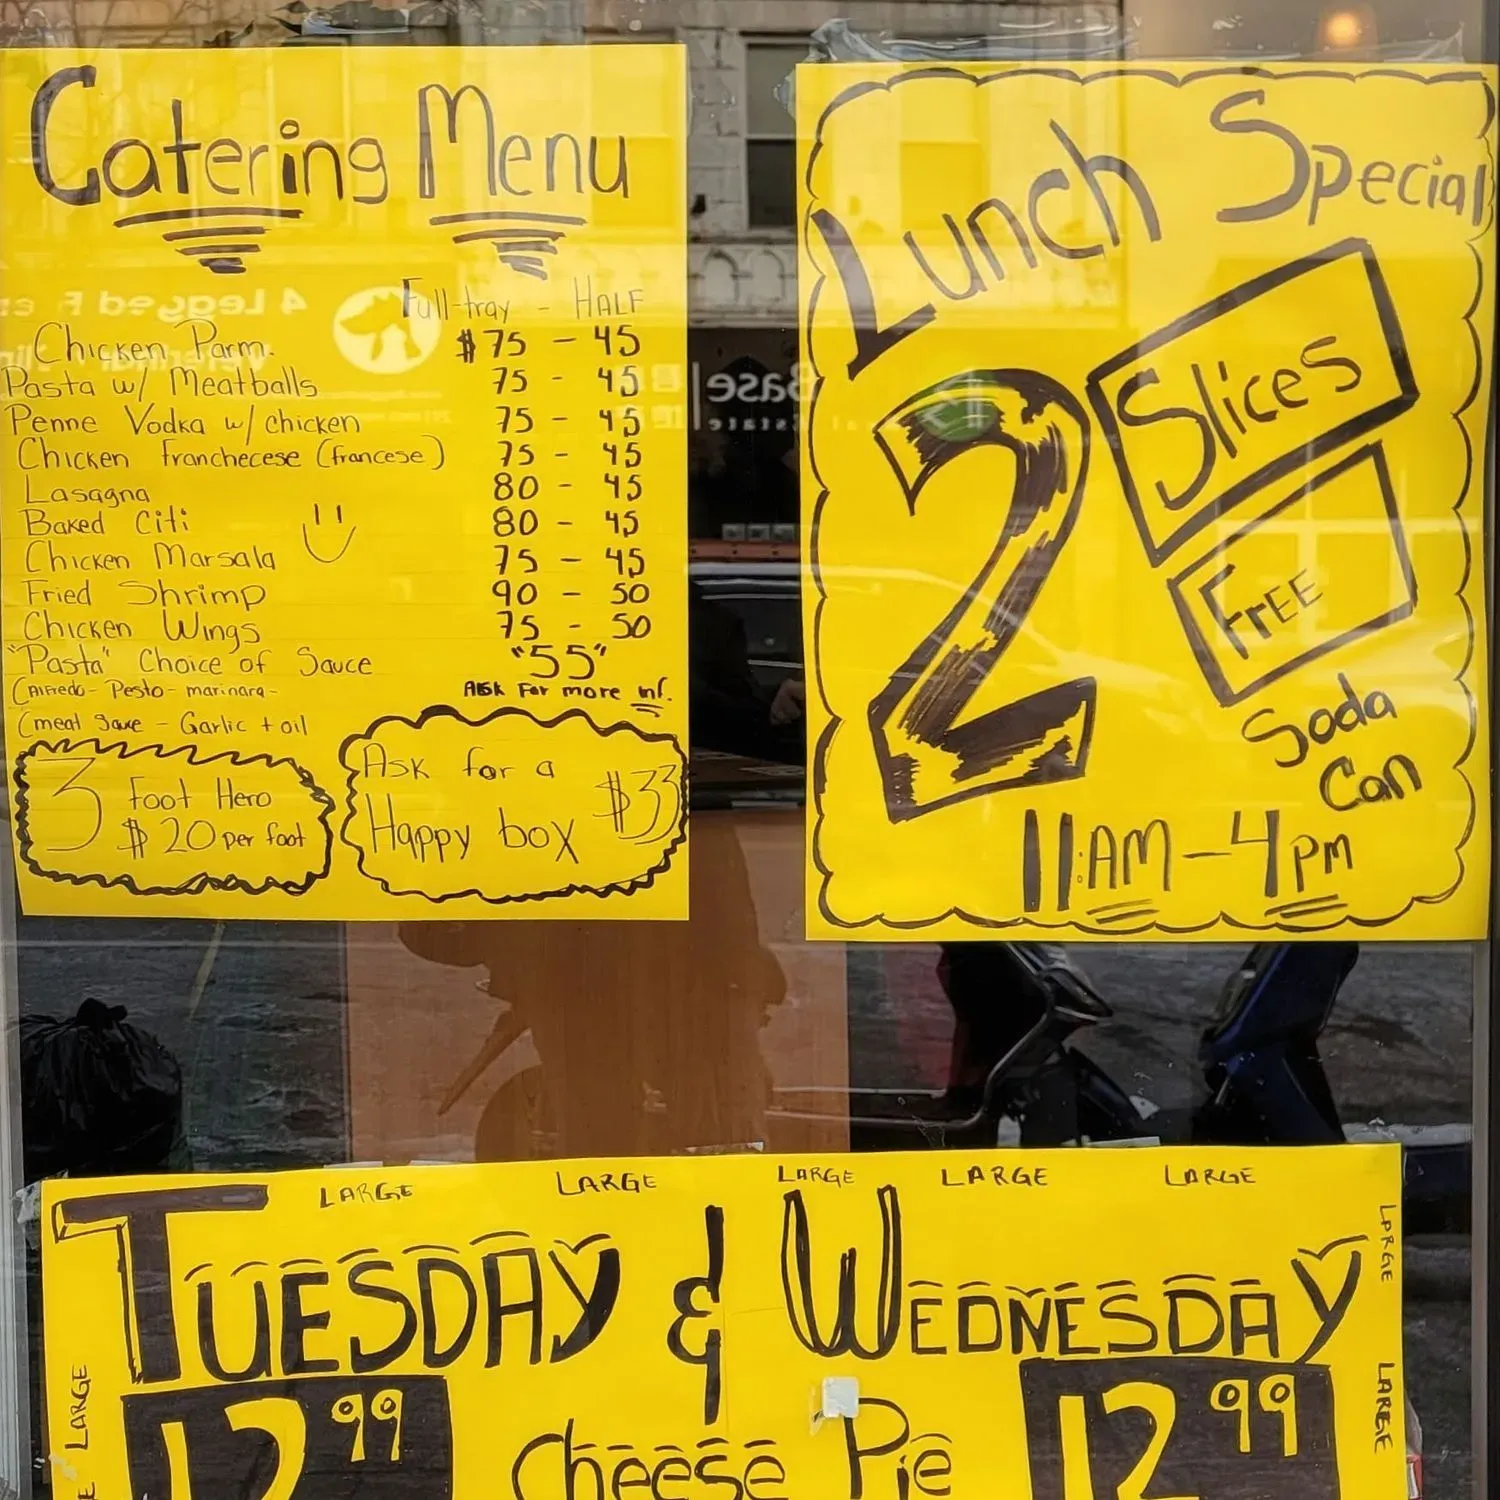 Catering Menu
Full-tray - HALF
Chicken Parm. $75 - 45
Pasta w/ Meatballs 75 - 45
Penne Vodka w/ chicken 75 - 45
Chicken franchecese (francese) 75 - 45
Lasagna 80 - 45
Baked Citi 80 - 45
Chicken Marsala 75 - 45
Fried Shrimp 90 - 50
Chicken Wings 75 - 50
"Pasta" Choice of Sauce "55"
(Alfredo - Pesto - marinara - ASK For more inf.
(meat Sauce - Garlic + oil
3 foot Hero
$20 per foot
Ask for a
Happy box $33
Lunch Special
2 Slices
FrEE
Soda
Can
11:AM - 4pm
LARGE LARGE LARGE LARGE LARGE
TUESDAY & WEDNESDAY
LARGE
LARGE
LARGE
12 99 Cheese Pie 12 99
4 Legged F
Base